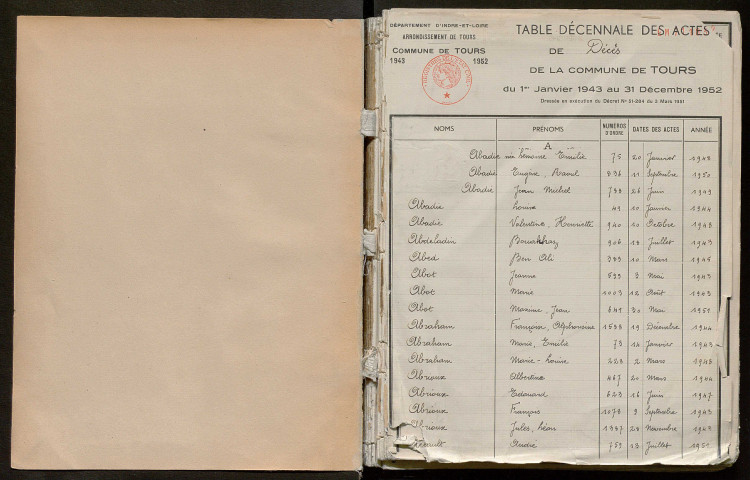 DÉPARTEMENT D'INDRE-ET-LOIRE
ARRONDISSEMENT DE TOURS
COMMUNE DE TOURS
1943 1952
TABLE DÉCENNALE DES ACTES
DE Décès
DE LA COMMUNE DE TOURS
du 1er Janvier 1943 au 31 Décembre 1952
Dressée en exécution du Décret No 51-284 du 3 Mars 1951
NOMS PRÉNOMS NUMÉROS D'ORDRE DATES DES ACTES ANNÉE
A
Abadie Emilie 75 20 Janvier 1948
Abadie Eugène, Raoul 836 21 Septembre 1950
Abadie Jean Michel 799 26 Juin 1949
Abadie Louise 49 10 Janvier 1944
Abadie Valentine, Henriette 940 10 Octobre 1948
Abdeladin 906 18 Juillet 1943
Abed Ben Ali 389 10 Mars 1945
Abot Jeanne 599 2 Mai 1943
Abot Marie 1003 12 Août 1943
Abot Maxime, Jean 649 30 Mai 1951
Abraham Françoise, Alphonsine 1588 19 Décembre 1944
Abraham Marie, Emilie 79 14 Janvier 1943
Abraham Marie-Louise 228 2 Mars 1948
Abrioux Albertine 467 20 Mars 1944
Abrioux Edouard 623 16 Juin 1947
Abrioux François 1078 9 Septembre 1943
Abrioux Jules, Léon 1347 28 Novembre 1943
André 759 13 Juillet 1951